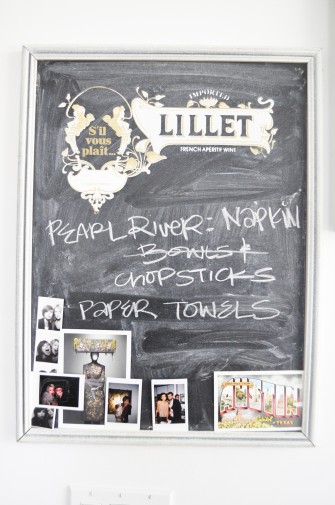 S'il
vous
plaît...
IMPORTED
LILLET
FRENCH APERITIF WINE
PEARL RIVER: NAPKIN
BOWLS &
CHOPSTICKS
PAPER TOWELS
AUSTIN
TEXAS